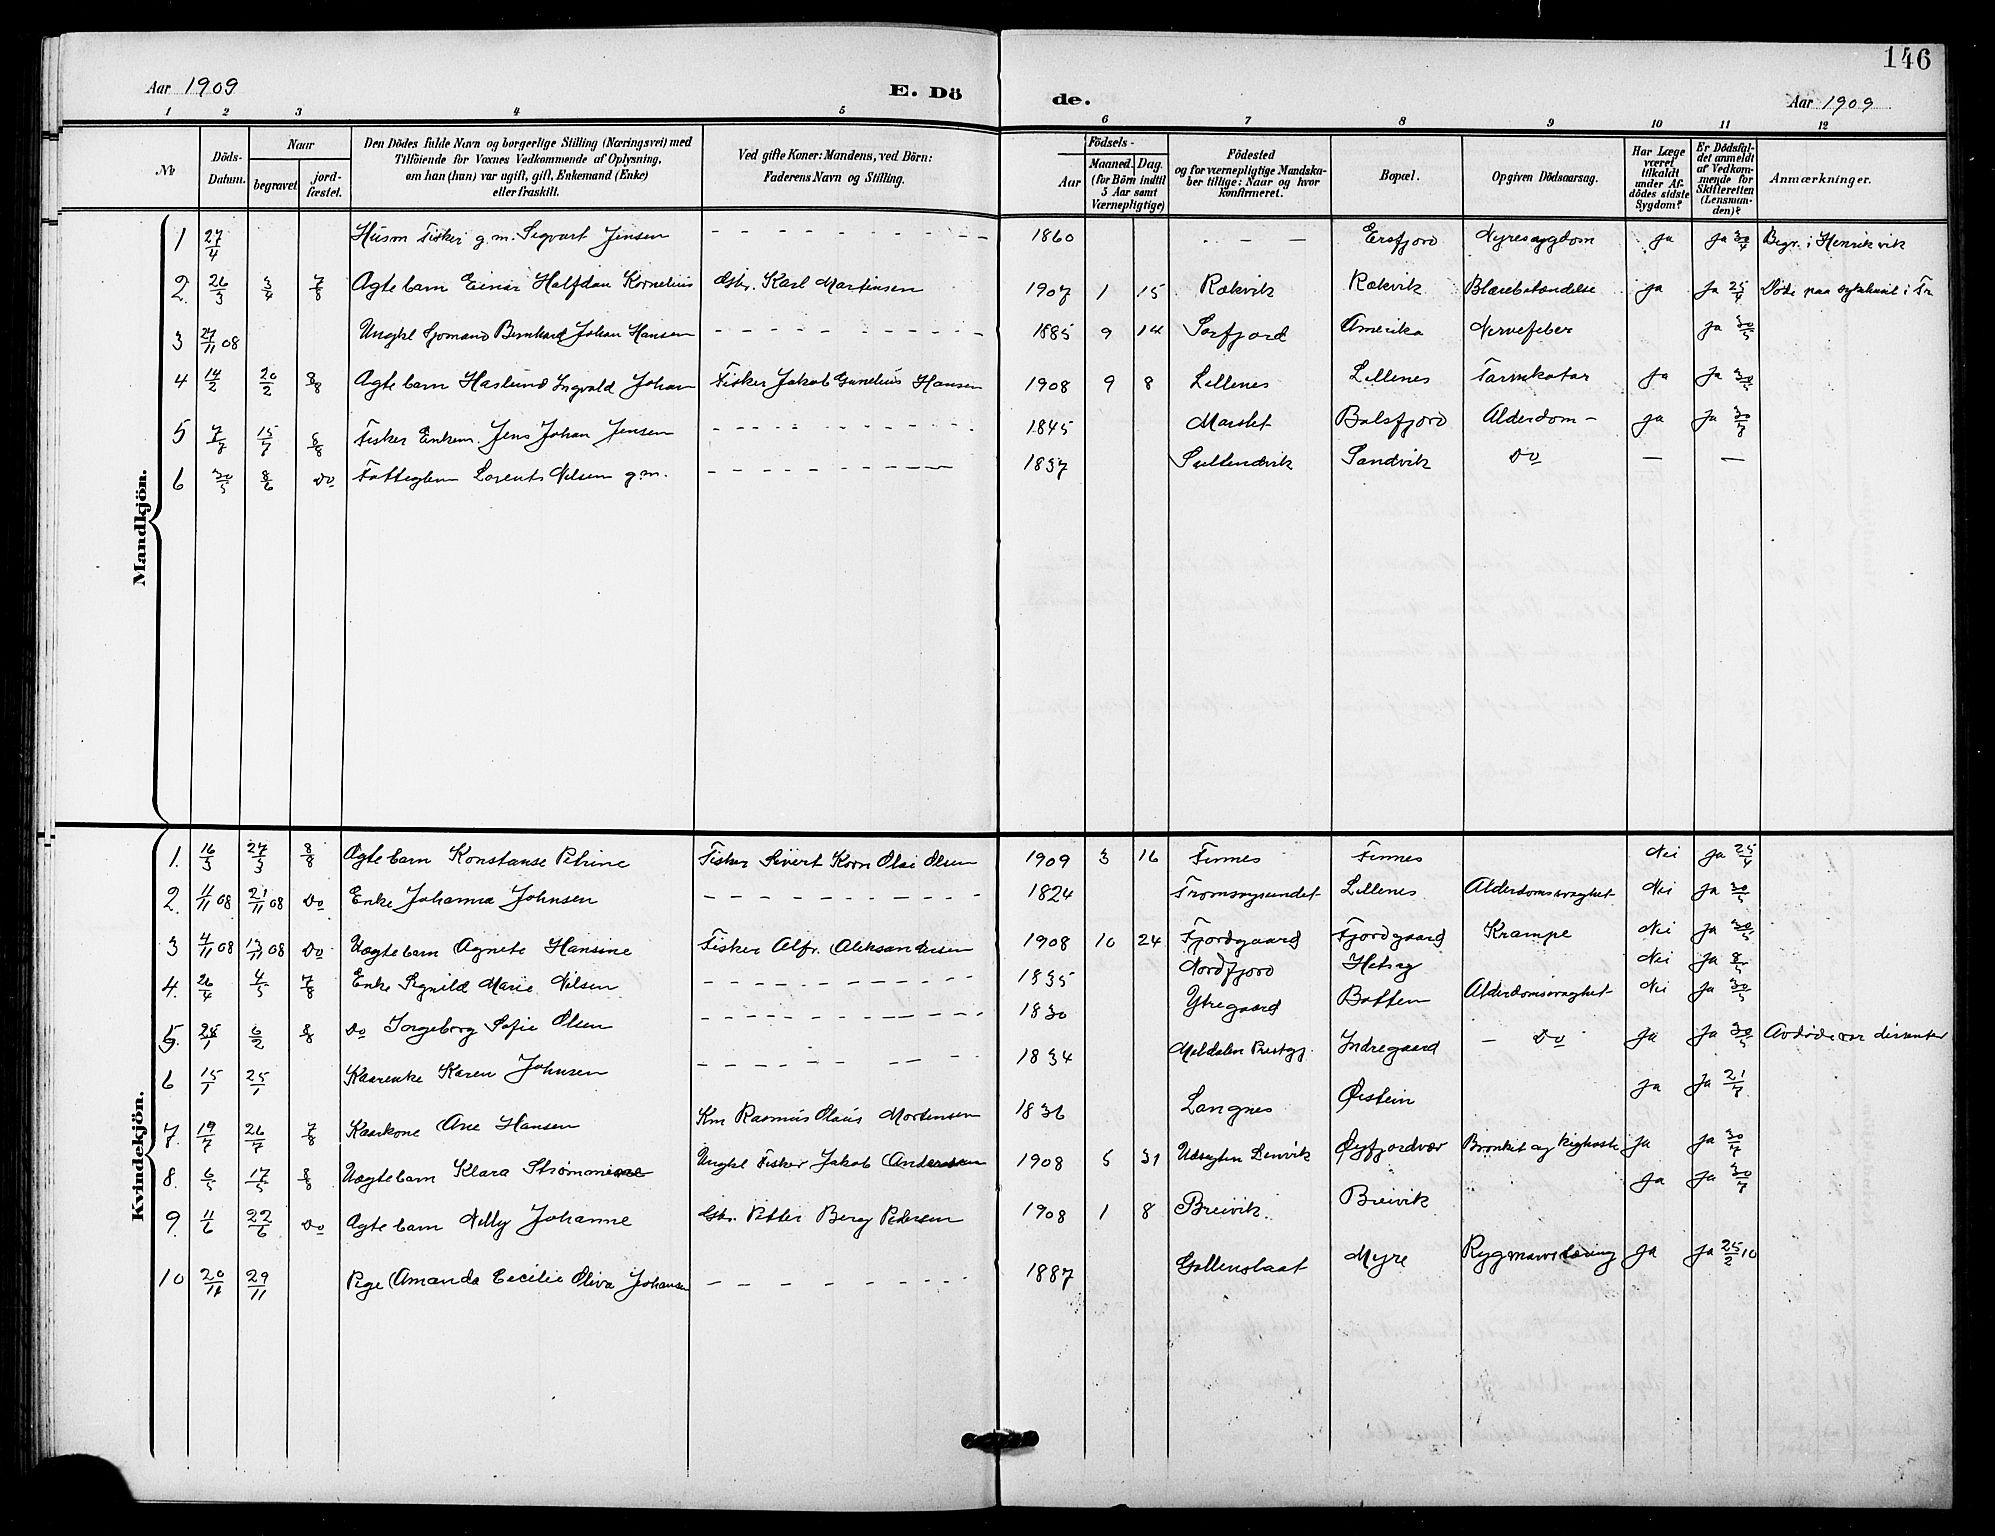 146
Aar 1909
E. Dö
de.
Aar 1909
1 2 3 4 5 6 7 8 9 10 11 12
No
Döds-
Datum.
Naar
begravet
jord-
fæstet.
Den Dödes fulde Navn og borgerlige Stilling (Næringsvei) med
Tilföiende for Voxnes Vedkommende af Oplysning,
om han (hun) var ugift, gift, Enkemand (Enke)
eller fraskilt.
Ved gifte Koner: Mandens, ved Börn:
Faderens Navn og Stilling.
Födsels-
Aar
Maaned. Dag.
(for Börn indtil
5 Aar samt
Værnepligtige)
Födested
og for værnepligtige Mandska-
ber tillige: Naar og hvor
konfirmeret.
Bopæl.
Opgiven Dödsaarsag.
Har Læge
været
tilkaldt
under Af-
dödes sidste
Sygdom?
Er Dödsfal-
det anmeldt
af Vedkom-
mende for
Skifteretten
(Lensman-
den)?
Anmærkninger.
Mandkjön.
1 27/4 Husm Fisker g.m. Sigvart Jensen - - - 1860 - - - Ersfjord Nyresygdom Ja Ja 30/4 Begr. i Henrikvik
2. 26/3 3/4 7/8 Ægte barn Einar Halfdan Kornelius Gbr. Karl Martinsen 1907 1 15 Rækvik Rækvik Blærebetændelse Ja Ja 25/4 Døde paa sykehuset i Tr
3 27/11 08 Ungkl Sjømand Bernhard Johan Hansen - - - 1885 9 14 Sørfjord Amerika Nervefeber Ja 30/5
4 14/2 20/2 8/8 Ægte barn Haslund Ingvald Johan Fisker Jakob Gunelius Hansen 1908 9 8 Lillenes Lillenes Tarmkatar Ja Ja 30/5
5 7/7 15/7 8/8 Fisker Enkem. Jens Johan Jensen - - - 1845 Marslet Balsfjord Alderdom - Ja Ja 30/7
6 30/5 8/6 Do Fattiglem Lorents Nilsen g.m. - - - 1837 Sultendvik Sandvik Do — —
Kvindekjön.
1. 16/3 27/3 8/8 Ægte barn Konstanse Petrine Fisker Sivert Korn Olai Olsen 1909 3 16 Finnes Finnes Nei Ja 25/4
2. 11/11 08 21/11 08 Do Enke Johanna Johnsen - - - 1824 Tromsøysundet Lillenes Alderdomssvaghet Nei Ja 30/5
3 4/11 08 13/11 08 Do Uægte barn Agnete Hansine Fisker Alfr. Aleksandersen 1908 10 24 Fjordgaard Fjordgaard Krampe Nei Ja 30/5
4. 26/4 4/5 7/8 Enke Signild Marie Nilsen - - - 1835 Nordfjord Hetsøy Nei Ja 8/5
5. 25/1 6/2 8/8 Do Ingeborg Sofie Olsen - - - 1830 Ytregaard Botten Alderdomssvaghet Nei Ja 30/5
6 15/1 25/1 Kaarenke Karen Johnsen - - - 1834 Meldalen Prestgj. Indregaard - Do Ja Ja 30/5 Avdøde var dissenter
7. 19/7 26/7 7/8 Kaarkone Ane Hansen Km Rasmus Olaus Mortensen 1836 Langnes Ørstein Ja Ja 21/7
8. 6/5 17/5 8/8 Uægte barn Klara Strømanine Ungkl Fisker Jakob Andersen 1908 5 31 Lenvik Øyfjordvær Bronkit og kighoste Ja Ja 30/7
9. 11/6 22/6 Do Ægte barn Nelly Johanne Gbr. Petter Berg Pedersen 1908 1 8 Breivik. Breivik Ja Ja 30/7
10 20/11 29/11 Pige Amanda Cecilie Oliva Johansen - - - 1887 Gollenslaat Myre Rygmarvstæring Ja Ja 25/2 10